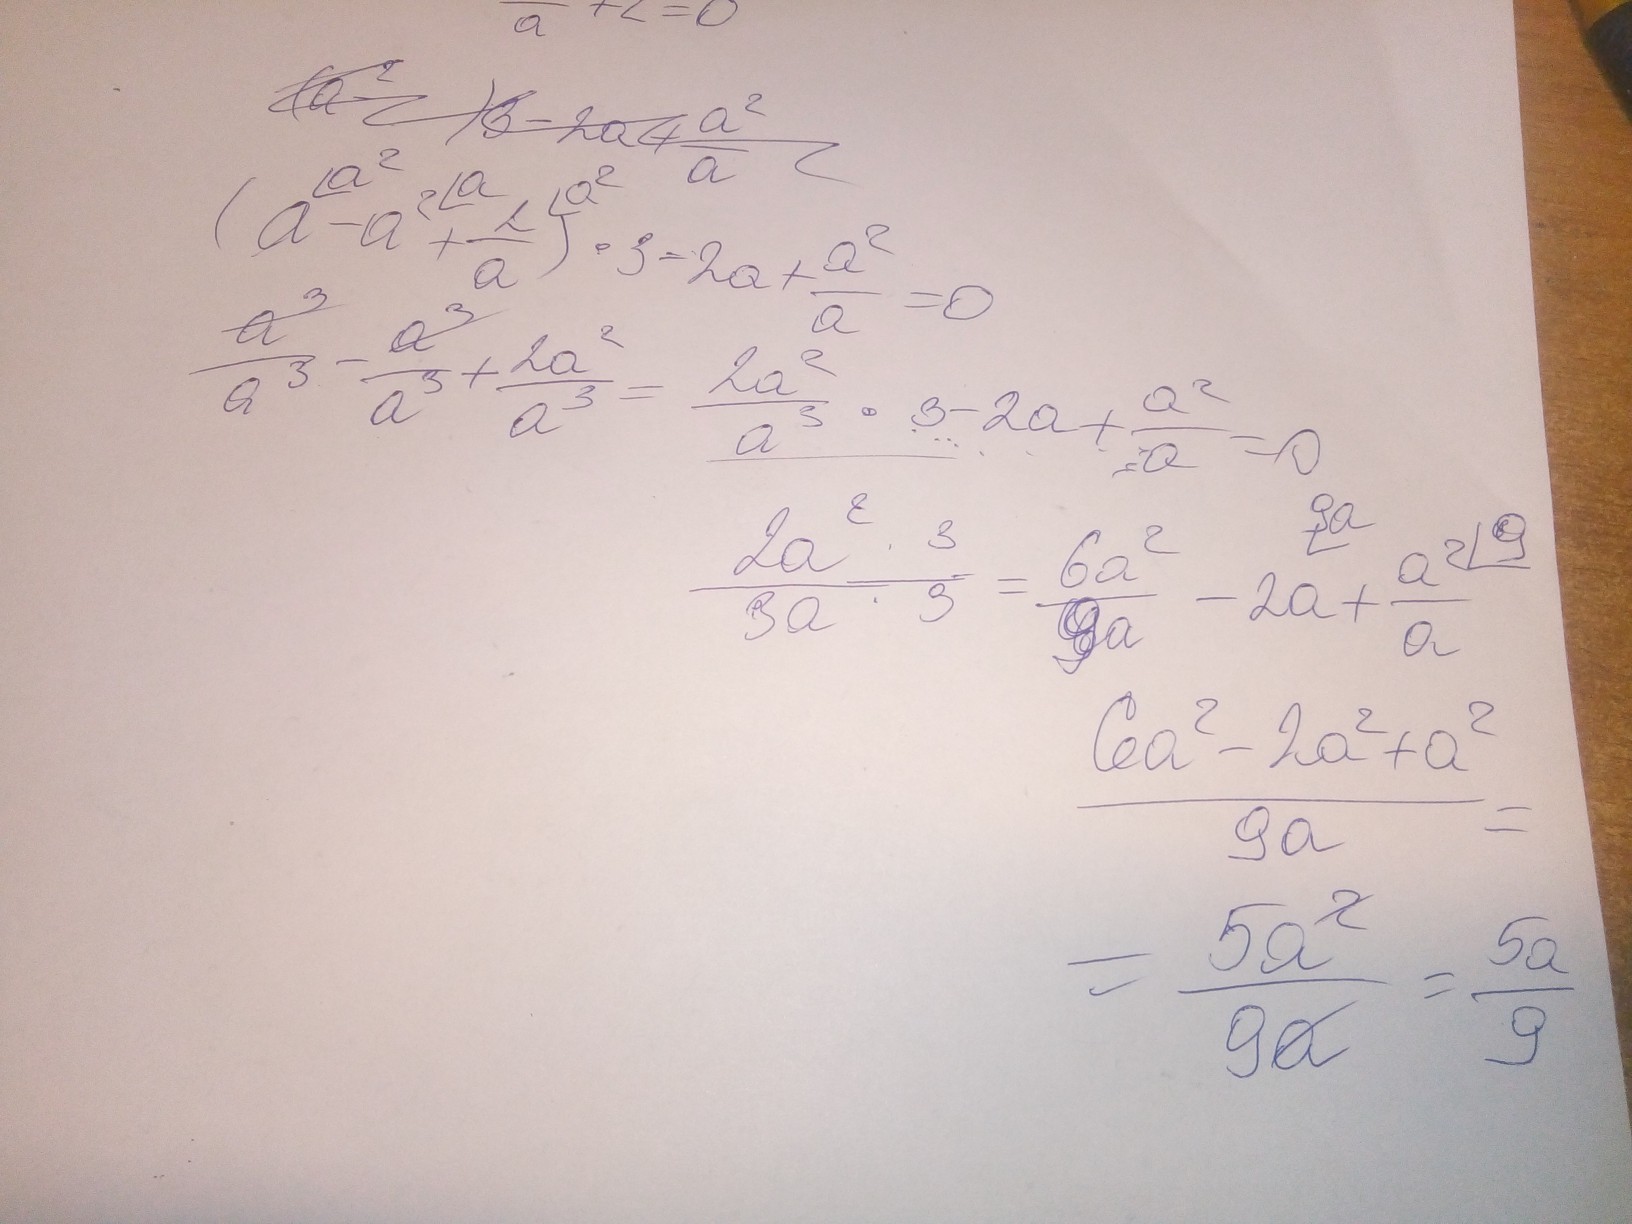 a + 2 = 0
(a² )3 - 2a + a²/a
(a - a² + 2/a) · 3 - 2a + a²/a = 0
a² a a²
a³/a³ - a³/a³ + 2a²/a³ = 2a²/a³ · 3 - 2a + a²/a = 0
9a 9
2a² · 3/3a · 3 = 6a²/9a - 2a + a²/a
6a² - 2a² + a²/9a =
= 5a²/9a = 5a/9